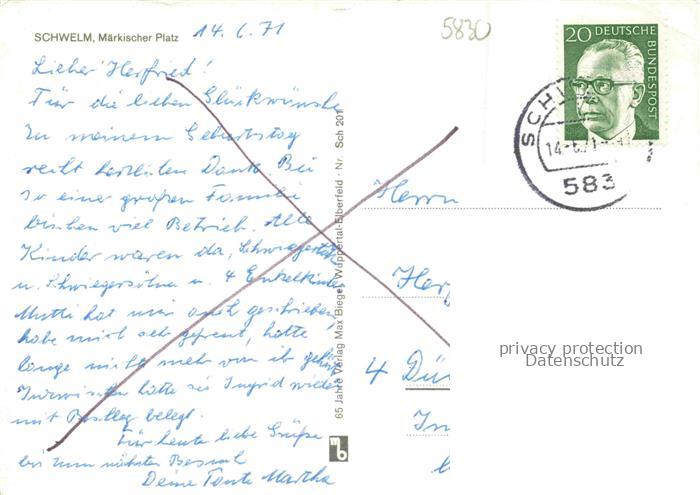 SCHWELM, Märkischer Platz
14.6.71
5830
20 DEUTSCHE BUNDESPOST
SCHW
14.-6.71
583
Lieber Herfried!
Für die lieben Glückwünsche
zu meinem Geburtstag
recht herzlichen Dank. Bei
so einer großen Familie
bischen viel Betrieb. Alle
Kinder waren da, Schwiegertöchter
u. Schwiegersöhne u. 4 Enkelkinder
Mutti hat mir auch geschrieben,
habe mich sehr gefreut, hatte
lange nichts mehr von ihr gehört
Inzwischen hatte sie Ingrid wieder
mit Beschlag belegt.
Für heute liebe Grüße
bis zum nächsten Besuch
Deine Tante Martha
65 Jahre Verlag Max Biegel, Wuppertal-Elberfeld · Nr. Sch 201
mb
Herrn
Her
4 Dü
In
privacy protection
Datenschutz